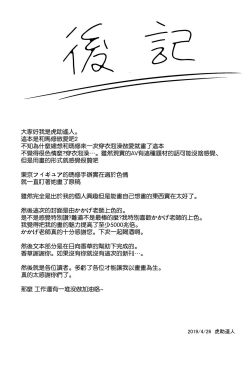 後記
大家好我是虎助遙人。
這本是和瑪修做愛吧2
不知為什麼總想和瑪修來一次穿衣泡澡做愛就畫了這本
不覺得很色情麼?穿衣泡澡…。雖然現實的AV有這種題材的話可能沒啥感覺、
但是用畫的形式就感覺很讚吧
東京フィギュア的瑪修手辦實在過於色情
就一直盯著她畫了原稿
雖然完全是出於我的個人興趣但是能畫自己想畫的東西實在太好了。
然後這次的封面是由かかげ老師上色的。
是不是感覺特別讚?難道不是最棒的麼?我特別喜歡かかげ老師的上色。
我覺得把我的畫的魅力提高了至少5000兆倍。
かかげ老師真的十分感謝您。下次一起喝酒啊。
然後文本部分是在日向香草的幫助下完成的。
香草謝謝你。如果沒有你就沒有這次的新刊…。
然後就是各位讀者。多虧了各位才能讓我以畫畫為生。
真的太感謝你們了。
那麼 工作還有一堆沒做加油咯~
2019/4/26 虎助遥人